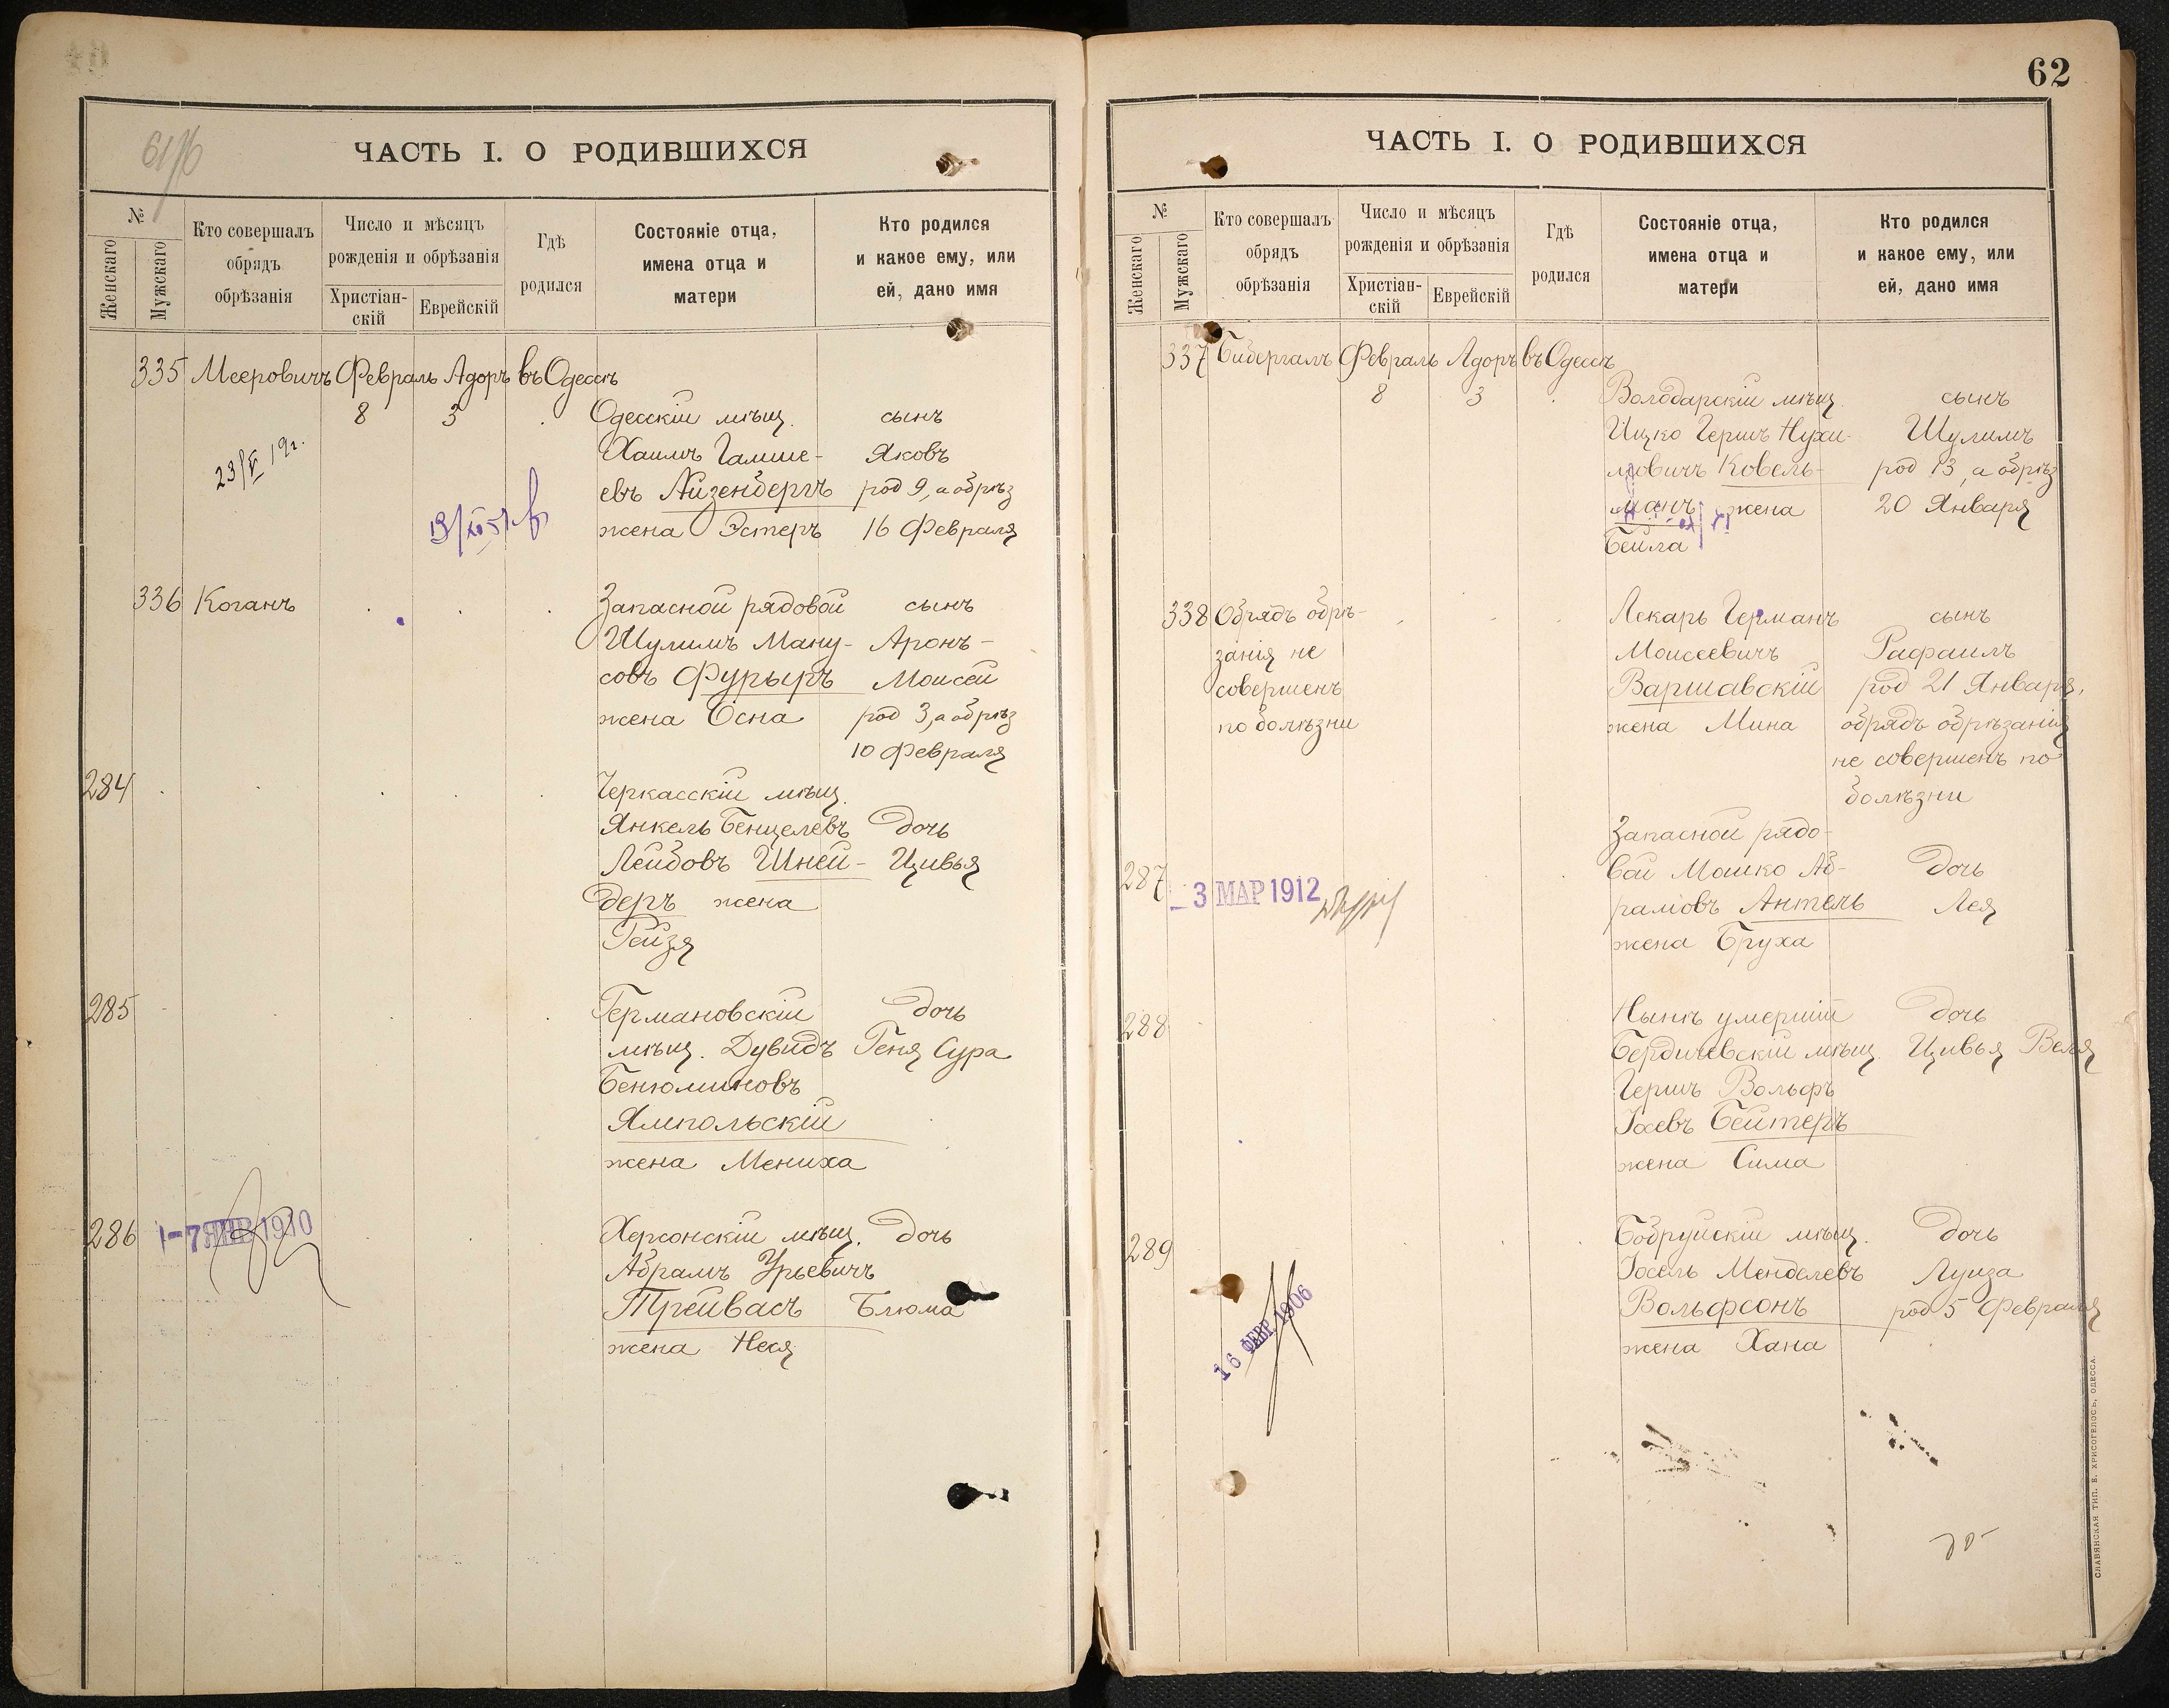 61/б
ЧАСТЬ I. О РОДИВШИХСЯ
№
Женскаго
Мужскаго
Кто совершалъ
обрядъ
обрѣзанія
Число и мѣсяцъ
рожденія и обрѣзанія
Христіан-
скій
Еврейскій
Гдѣ
родился
Состояніе отца,
имена отца и
матери
Кто родился
и какое ему, или
ей, дано имя
335 Мееровичъ Февраль Адоръ въ Одессѣ
8 3 Одесскій мѣщ. сынъ
Хаимъ Гамше- Яковъ
23/V 19г.
евъ Айзенбергъ род 9, а обрѣз
жена Эстеръ 16 Февраля
336 Коганъ Запасной рядовой сынъ
Шулимъ Ману- Аронъ-
совъ Фурыръ Моисей
жена Осна род 3, а обрѣз
10 Февраля
284 Черкасскій мѣщ.
Янкель Бенцелевъ дочь
Лейбовъ Шней- Цивья
деръ жена
Рейзя
285 Германовскій дочь
мѣщ. Дувидъ Геня Сура
Бенюминовъ
Ямпольскій
жена Мениха
286 -7 ЯНВ 1910 Херсонскій мѣщ. дочь
Абрамъ Урьевичъ
Трейвасъ Блюма
жена Нехя
62
ЧАСТЬ I. О РОДИВШИХСЯ
№
Женскаго
Мужскаго
Кто совершалъ
обрядъ
обрѣзанія
Число и мѣсяцъ
рожденія и обрѣзанія
Христіан-
скій
Еврейскій
Гдѣ
родился
Состояніе отца,
имена отца и
матери
Кто родился
и какое ему, или
ей, дано имя
337 Бибергалъ Февраль Адоръ въ Одессѣ
8 3 Володарскій мѣщ. сынъ
Ицко Гершъ Нухи- Шулимъ
мовичъ Ковель- род 13, а обрѣз
манъ жена 20 Января
Бейла
338 Обрядъ обрѣ- Лекарь Германъ сынъ
занія не Моисеевичъ Рафаилъ
совершенъ Варшавскій род 21 Января,
по болѣзни жена Мина обрядъ обрѣзанія
не совершенъ по
болѣзни
Запасной рядо-
287 вой Мошко Аб- дочь
- 3 МАР 1912 рамовъ Антель Лея
жена Бруха
288 Нынѣ умершій дочь
Бердичевскій мѣщ. Цивья Веля
Гершъ Вольфъ
Іосевъ Бейтеръ
жена Сима
289 Бобруйскій мѣщ. дочь
Іосель Менделевъ Луиза
16 ФЕВР 1906 Вольфсонъ род 5 Февраля
жена Хана
СЛАВЯНСКАЯ ТИП. Е. ХРИСОГЕЛОСЪ, ОДЕССА.